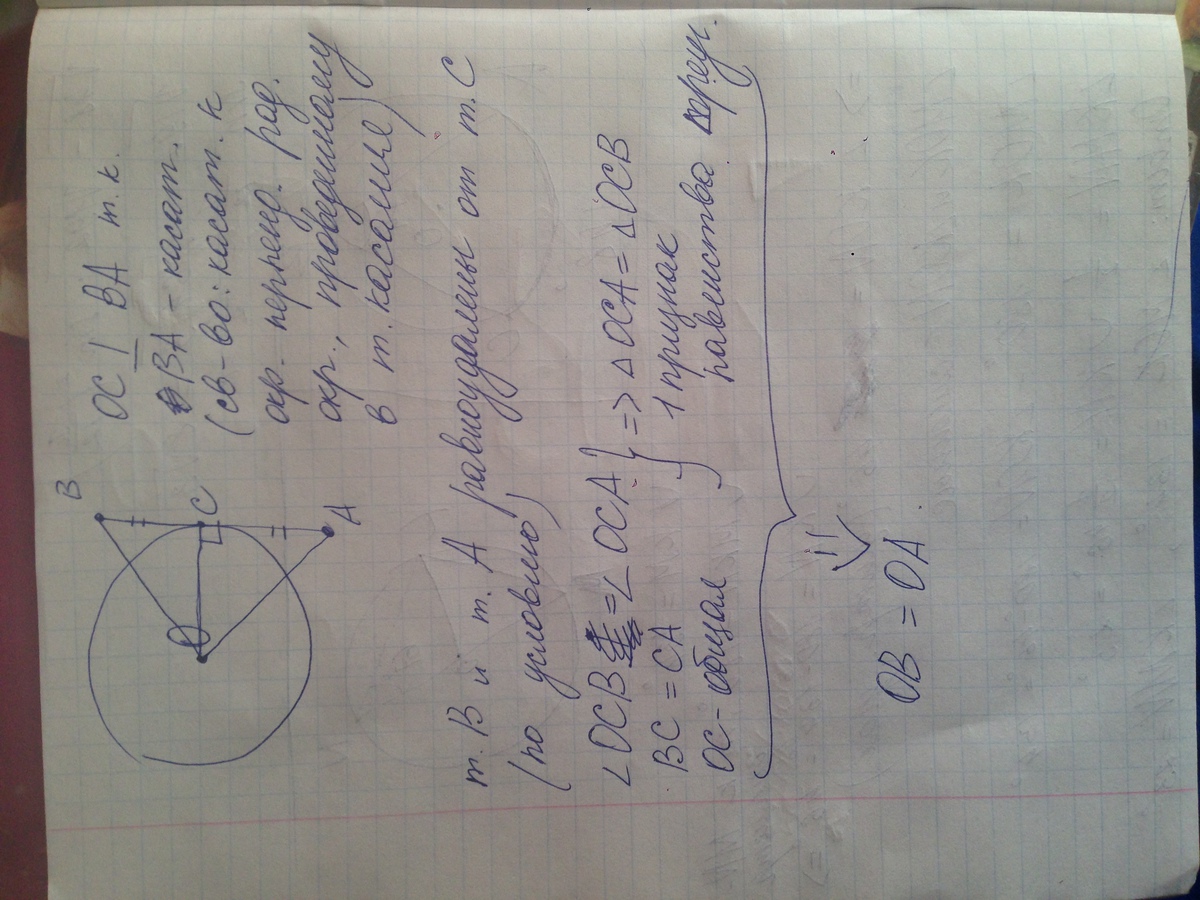 B
O
C
A
OC ⊥ BA т.к.
BA - касат.
(св-во: касат. к
окр. перпенд. рад.
окр., проведенному
в т. касания)
т. B и т. A равноудалены от т. C
(по условию)
∠OCB = ∠OCA } => △OCA = △OCB
BC = CA 1 признак
OC - общая равенства треуг.
OB = OA